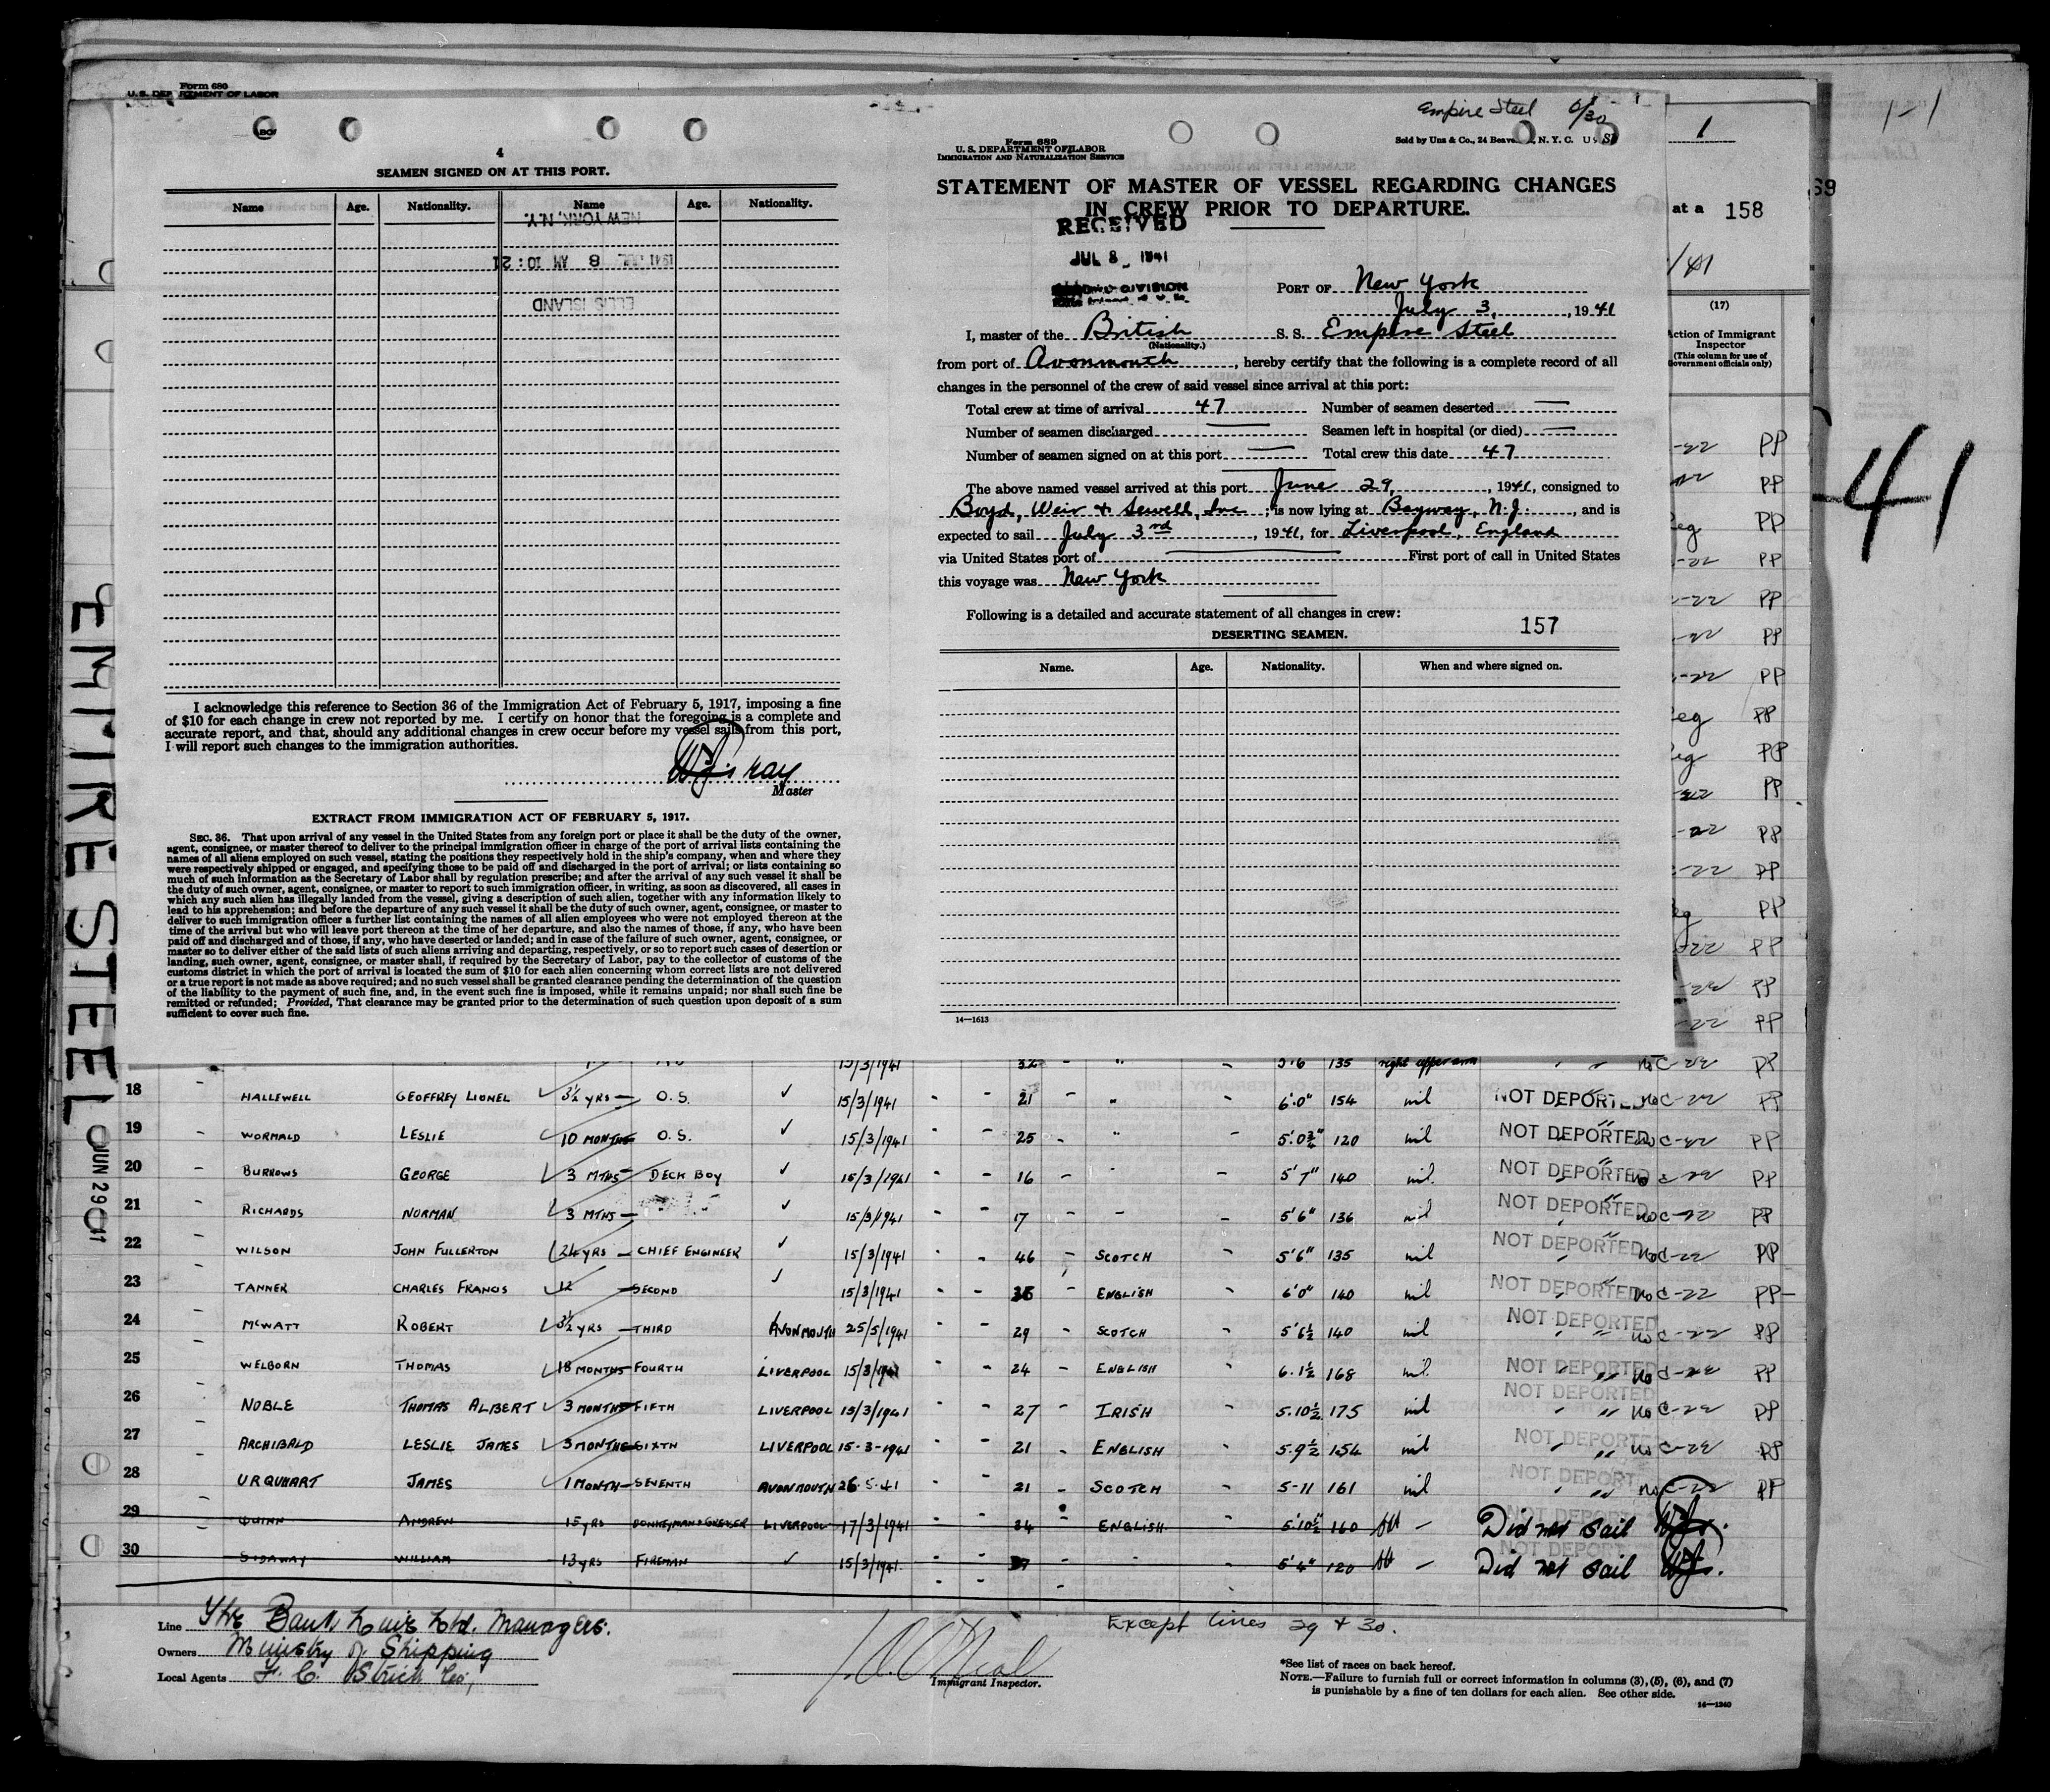 Form 680
U. S. DEPARTMENT OF LABOR
4
SEAMEN SIGNED ON AT THIS PORT.
Name Age. Nationality. Name Age. Nationality.
NEW YORK, N.Y.
1941 JUL 8 AM 10:21
ELLIS ISLAND
I acknowledge this reference to Section 36 of the Immigration Act of February 5, 1917, imposing a fine
of $10 for each change in crew not reported by me. I certify on honor that the foregoing is a complete and
accurate report, and that, should any additional changes in crew occur before my vessel sails from this port,
I will report such changes to the immigration authorities.
Master
EXTRACT FROM IMMIGRATION ACT OF FEBRUARY 5, 1917.
SEC. 36. That upon arrival of any vessel in the United States from any foreign port or place it shall be the duty of the owner,
agent, consignee, or master thereof to deliver to the principal immigration officer in charge of the port of arrival lists containing the
names of all aliens employed on such vessel, stating the positions they respectively hold in the ship's company, when and where they
were respectively shipped or engaged, and specifying those to be paid off and discharged in the port of arrival; or lists containing so
much of such information as the Secretary of Labor shall by regulation prescribe; and after the arrival of any such vessel it shall be
the duty of such owner, agent, consignee, or master to report to such immigration officer, in writing, as soon as discovered, all cases in
which any such alien has illegally landed from the vessel, giving a description of such alien, together with any information likely to
lead to his apprehension; and before the departure of any such vessel it shall be the duty of such owner, agent, consignee, or master to
deliver to such immigration officer a further list containing the names of all alien employees who were not employed thereon at the
time of the arrival but who will leave port thereon at the time of her departure, and also the names of those, if any, who have been
paid off and discharged and of those, if any, who have deserted or landed; and in case of the failure of such owner, agent, consignee, or
master so to deliver either of the said lists of such aliens arriving and departing, respectively, or so to report such cases of desertion or
landing, such owner, agent, consignee, or master shall, if required by the Secretary of Labor, pay to the collector of customs of the
customs district in which the port of arrival is located the sum of $10 for each alien concerning whom correct lists are not delivered
or a true report is not made as above required; and no such vessel shall be granted clearance pending the determination of the question
of the liability to the payment of such fine, and, in the event such fine is imposed, while it remains unpaid; nor shall such fine be
remitted or refunded; Provided, That clearance may be granted prior to the determination of such question upon deposit of a sum
sufficient to cover such fine.
Empire Steel 6/30
Form 689
U. S. DEPARTMENT OF LABOR
IMMIGRATION AND NATURALIZATION SERVICE
Sold by Unz & Co., 24 Beaver, N. Y. C.
STATEMENT OF MASTER OF VESSEL REGARDING CHANGES
IN CREW PRIOR TO DEPARTURE.
RECEIVED
JUL 8 1941
DIVISION
PORT OF New York
July 3, 1941
I, master of the British S. S. Empire Steel
(Nationality.)
from port of Avonmouth, hereby certify that the following is a complete record of all
changes in the personnel of the crew of said vessel since arrival at this port:
Total crew at time of arrival 47 Number of seamen deserted —
Number of seamen discharged — Seamen left in hospital (or died) —
Number of seamen signed on at this port — Total crew this date 47
The above named vessel arrived at this port June 29, 1941, consigned to
Boyd, Weir & Sewell, Inc; is now lying at Bayway, N.J., and is
expected to sail July 3rd, 1941, for Liverpool, England
via United States port of — First port of call in United States
this voyage was New York
Following is a detailed and accurate statement of all changes in crew:
157
DESERTING SEAMEN.
Name. Age. Nationality. When and where signed on.
14—1613
1
at a 158
/41
(17)
Action of Immigrant
Inspector
(This column for use of
Government officials only)
69
1-1
41
EMPIRE STEEL
JUN 29 1941
15/3/1941 32 " 5'6 135 right upper arm no C-22 PP
18 HALLEWELL GEOFFREY LIONEL 3½ YRS O.S. ✓ 15/3/1941 21 " 6'0" 154 nil NOT DEPORTED no C-22 PP
19 WORMALD LESLIE 10 MONTHS O.S. 15/3/1941 25 5'0¾" 120 nil NOT DEPORTED no C-22 PP
20 BURROWS GEORGE 3 MTHS DECK BOY ✓ 15/3/1941 16 " 5'7" 140 nil. NOT DEPORTED no C-22 PP
21 RICHARDS NORMAN 3 MTHS ✓ 15/3/1941 17 5'6" 136 nil NOT DEPORTED no C-22 PP
22 WILSON JOHN FULLERTON 24 YRS CHIEF ENGINEER ✓ 15/3/1941 46 SCOTCH 5'6" 135 nil NOT DEPORTED no C-22 PP
23 TANNER CHARLES FRANCIS 12 SECOND ✓ 15/3/1941 ENGLISH 6'0" 140 nil NOT DEPORTED no C-22 PP
24 McWATT ROBERT 3½ YRS THIRD AVONMOUTH 25/5/1941 29 SCOTCH 5'6½ 140 nil NOT DEPORTED no C-22 PP
25 WELBORN THOMAS 18 MONTHS FOURTH LIVERPOOL 15/3/1941 24 ENGLISH 6.1½ 168 nil. NOT DEPORTED no C-22 PP
26 NOBLE THOMAS ALBERT 3 MONTHS FIFTH LIVERPOOL 15/3/1941 27 IRISH 5.10½ 175 nil NOT DEPORTED no C-22 PP
27 ARCHIBALD LESLIE JAMES 3 MONTHS SIXTH LIVERPOOL 15-3-1941 21 ENGLISH 5.9½ 154 nil NOT DEPORTED no C-22 PP
28 URQUHART JAMES 1 MONTH SEVENTH AVONMOUTH 26.5.41 21 SCOTCH 5-11 161 nil NOT DEPORTED no C-22 PP
29 QUINN ANDREW 15 YRS DONKEYMAN & GREASER LIVERPOOL 17/3/1941 34 ENGLISH 5'10½" 160 Did not sail
30 SIDAWAY WILLIAM 13 YRS FIREMAN ✓ 15/3/1941 5'4" 120 Did not sail
Line The Bank Line Ltd. Managers.
Owners Ministry of Shipping
Local Agents F. C. Strick Co,
Immigrant Inspector.
Except lines 29 & 30.
*See list of races on back hereof.
NOTE.—Failure to furnish full or correct information in columns (3), (5), (6), and (7)
is punishable by a fine of ten dollars for each alien. See other side.
14—1240